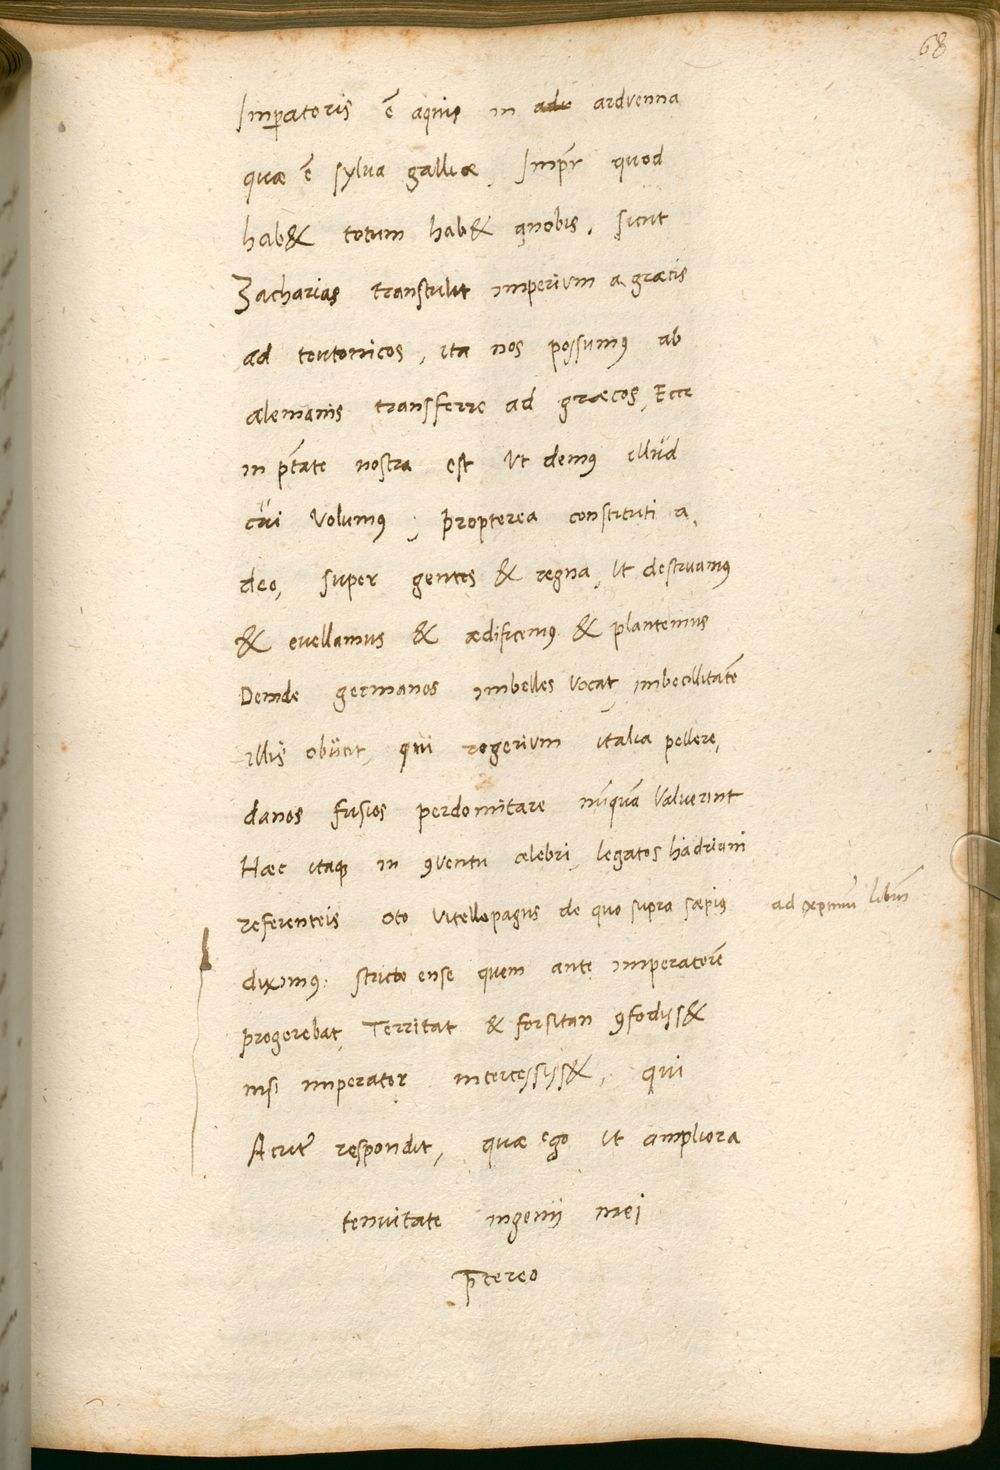 68
Imp̱atoris ē aquis in adu arduenna
quæ ē sylua galliæ, Imp̄r quod
hab& totum hab& a nobis. sicut
Zacharias transtulit imperium a græcis
ad teutonicos, ita nos possumꝰ ab
alemanis transferre ad græcos, Ecce
in p̄tate nostra est ut demꝰ illud
cui volumꝰ, propterea constituti a
deo, super gentes & regna, ut destruamꝰ
& euellamus & ædificemꝰ & plantemus
Deinde germanos imbelles vocat, imbecillitatē
illis obijcit, qui rogerium italia pellere,
danos frisios perdomitare nunquā valuerint
Hæc itaqꝫ in ꝯventu celebri legatos hadriani
referenteis oto vitellopagus de quo supra sæpiꝰ
ad septimū librum
diximꝰ. stricto ense quem ante imperatorē
progerebat, Territat & forsitan ꝯfodiss&
nisi imperator intercessiss&, qui
Acriter respondit, quæ ego ut ampliora
tenuitate ingenij mei
p̄tereo